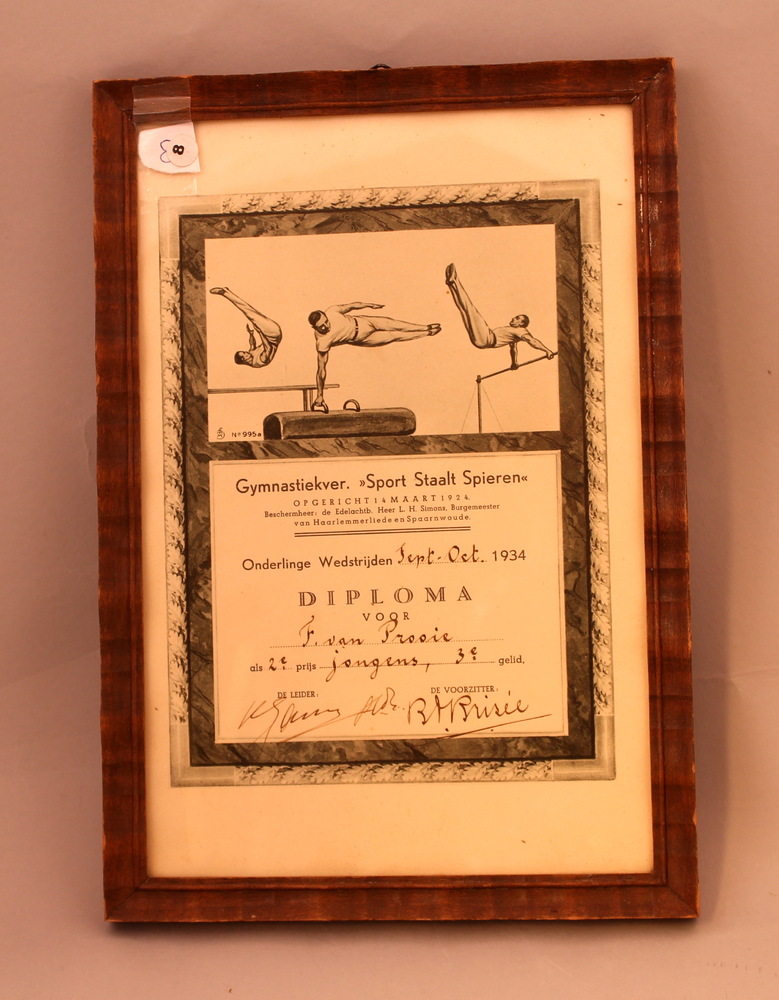 8
Nº 995a
Gymnastiekver. »Sport Staalt Spieren«
OPGERICHT 14 MAART 1924.
Beschermheer: de Edelachtb. Heer L. H. Simons, Burgemeester
van Haarlemmerliede en Spaarnwoude.
Onderlinge Wedstrijden Sept-Oct. 1934
DIPLOMA
VOOR
F. van Prooie
als 2e prijs jongens, 3e gelid.
DE LEIDER: DE VOORZITTER:
Brisée